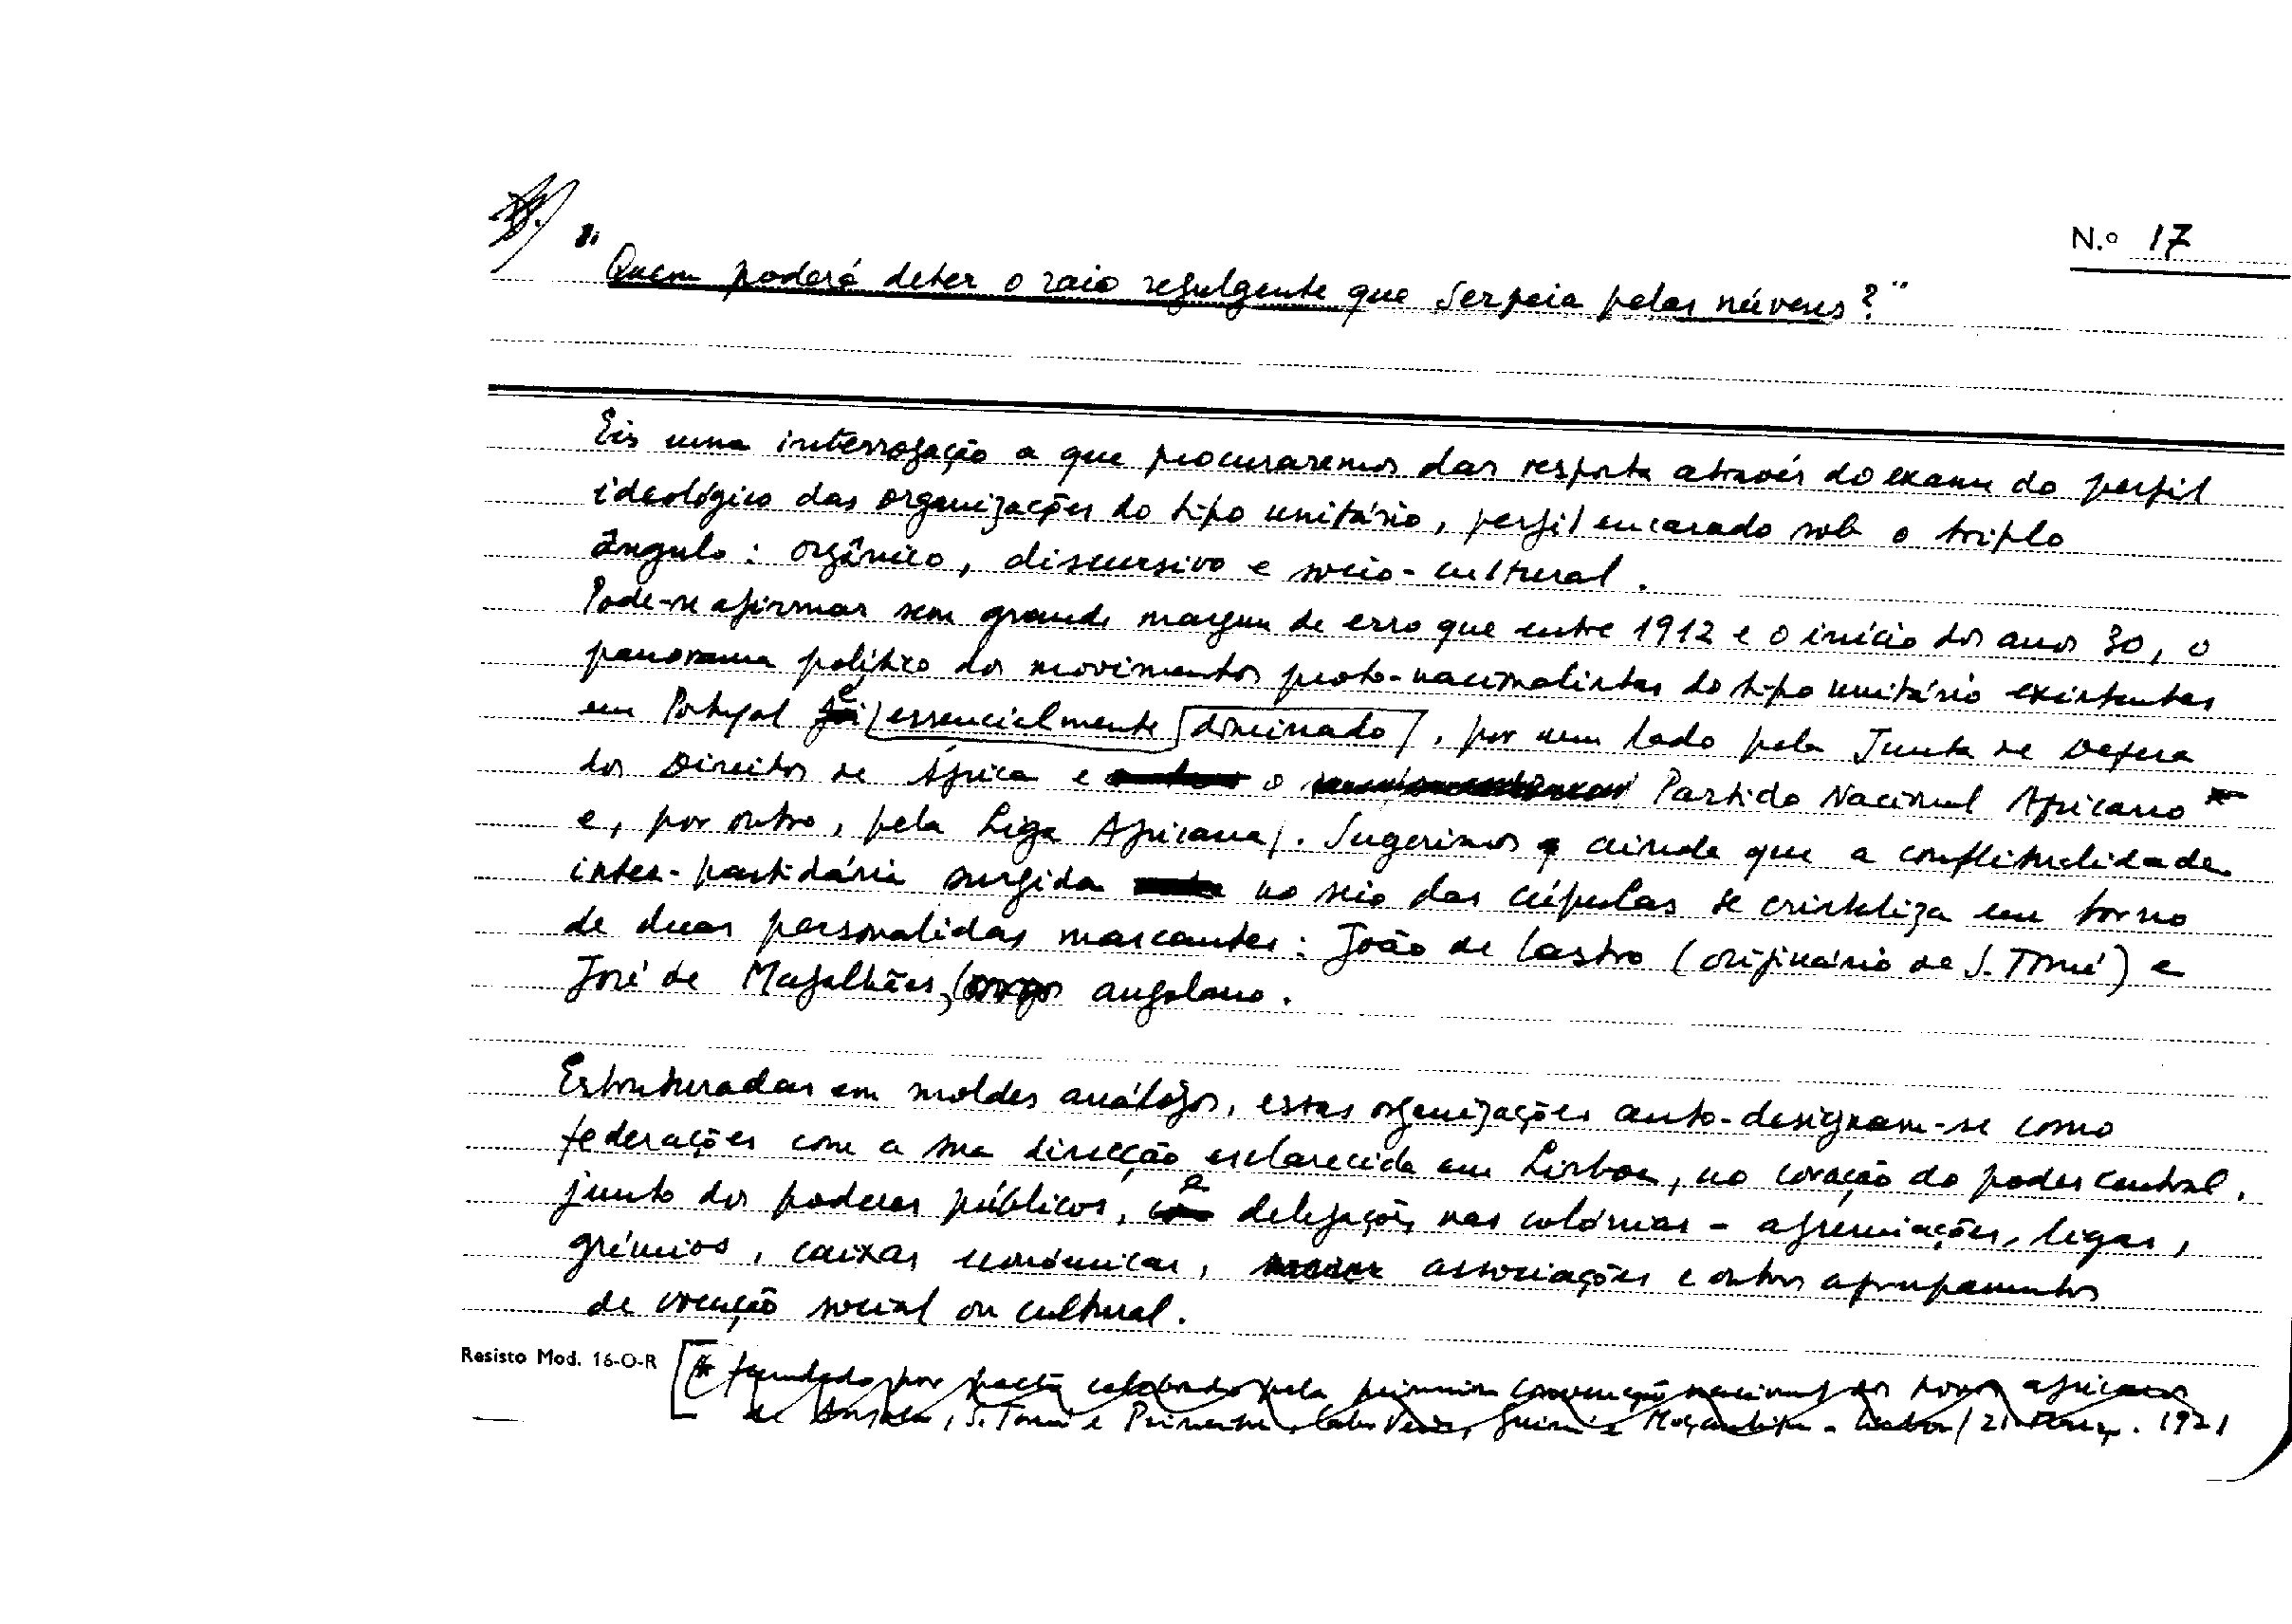 N.º 17
"Quem poderá deter o raio refulgente que serpeia pelas núvens?"
Eis uma interrogação a que procuraremos dar resposta através do exame do perfil
ideológico das organizações do tipo unitário, perfil encarado sob o triplo
ângulo: orgânico, discursivo e socio-cultural.
Pode-se afirmar sem grande margem de erro que entre 1912 e o início dos anos 30, o
panorama político dos movimentos proto-nacionalistas do tipo unitário existentes
em Portugal é essencialmente dominado, por um lado pela Junta de Defesa
dos Direitos de África e o Partido Nacional Africano *
e, por outro, pela Liga Africana. Sugerimos ainda que a conflitualidade
inter-partidária surgida no seio das cúpulas se cristaliza em torno
de duas personalidas marcantes: João de Castro (originário de S. Tomé) e
José de Magalhães, angolano.
Estruturadas em moldes análogos, estas organizações auto-designam-se como
federações com a sua direcção esclarecida em Lisboa, no coração do poder central,
junto dos poderes públicos, e delegações nas colónias - agremiações, ligas,
grémios, caixas económicas, associações e outros agrupamentos
de vocação social ou cultural.
Resisto Mod. 16-O-R
[* fundado por pacto celebrado pela primeira convenção nacional dos povos africanos
de Angola, S. Tomé e Príncipe, Cabo Verde, Guiné e Moçambique - Lisboa / 21 1921